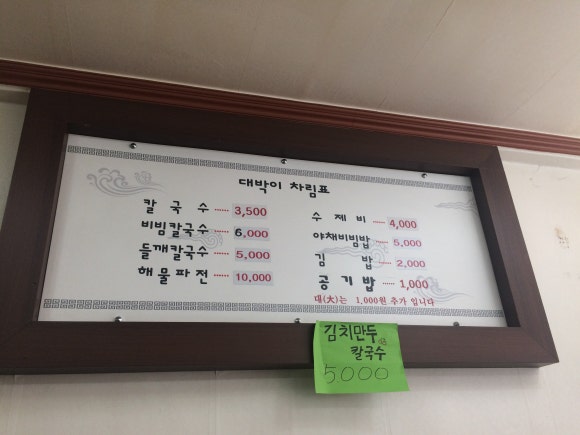 대박이 차림표
칼국수 ······ 3,500
비빔칼국수 ······ 6,000
들깨칼국수 ······ 5,000
해물파전 ······ 10,000
수제비 ······ 4,000
야채비빔밥 ······ 5,000
김밥 ······ 2,000
공기밥 ······ 1,000
대(大)는 1,000원 추가 입니다
김치만두
칼국수
5.000